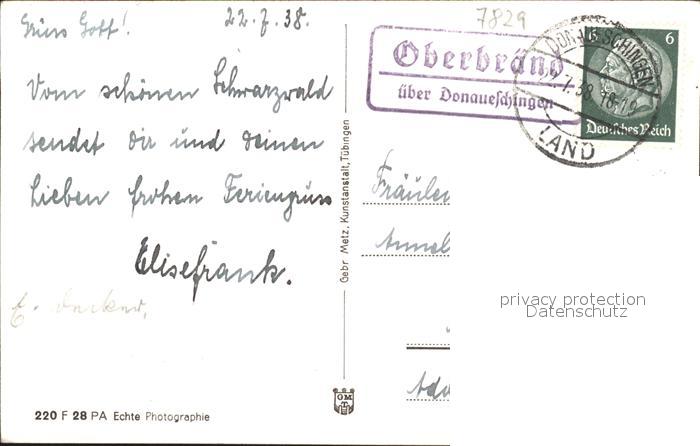 Grüss Gott!
22.7.38.
7829
Oberbränd
über Donaueschingen
DONAUESCHINGEN
.7.38.18-19
LAND
6
Deutsches Reich
Vom schönen Schwarzwald
sendet dir und deinen
Lieben frohen Feriengruss
Elisefrank.
E.
Gebr. Metz, Kunstanstalt, Tübingen
Fräulei
Annel
privacy protection
Datenschutz
GM
220 F 28 PA Echte Photographie